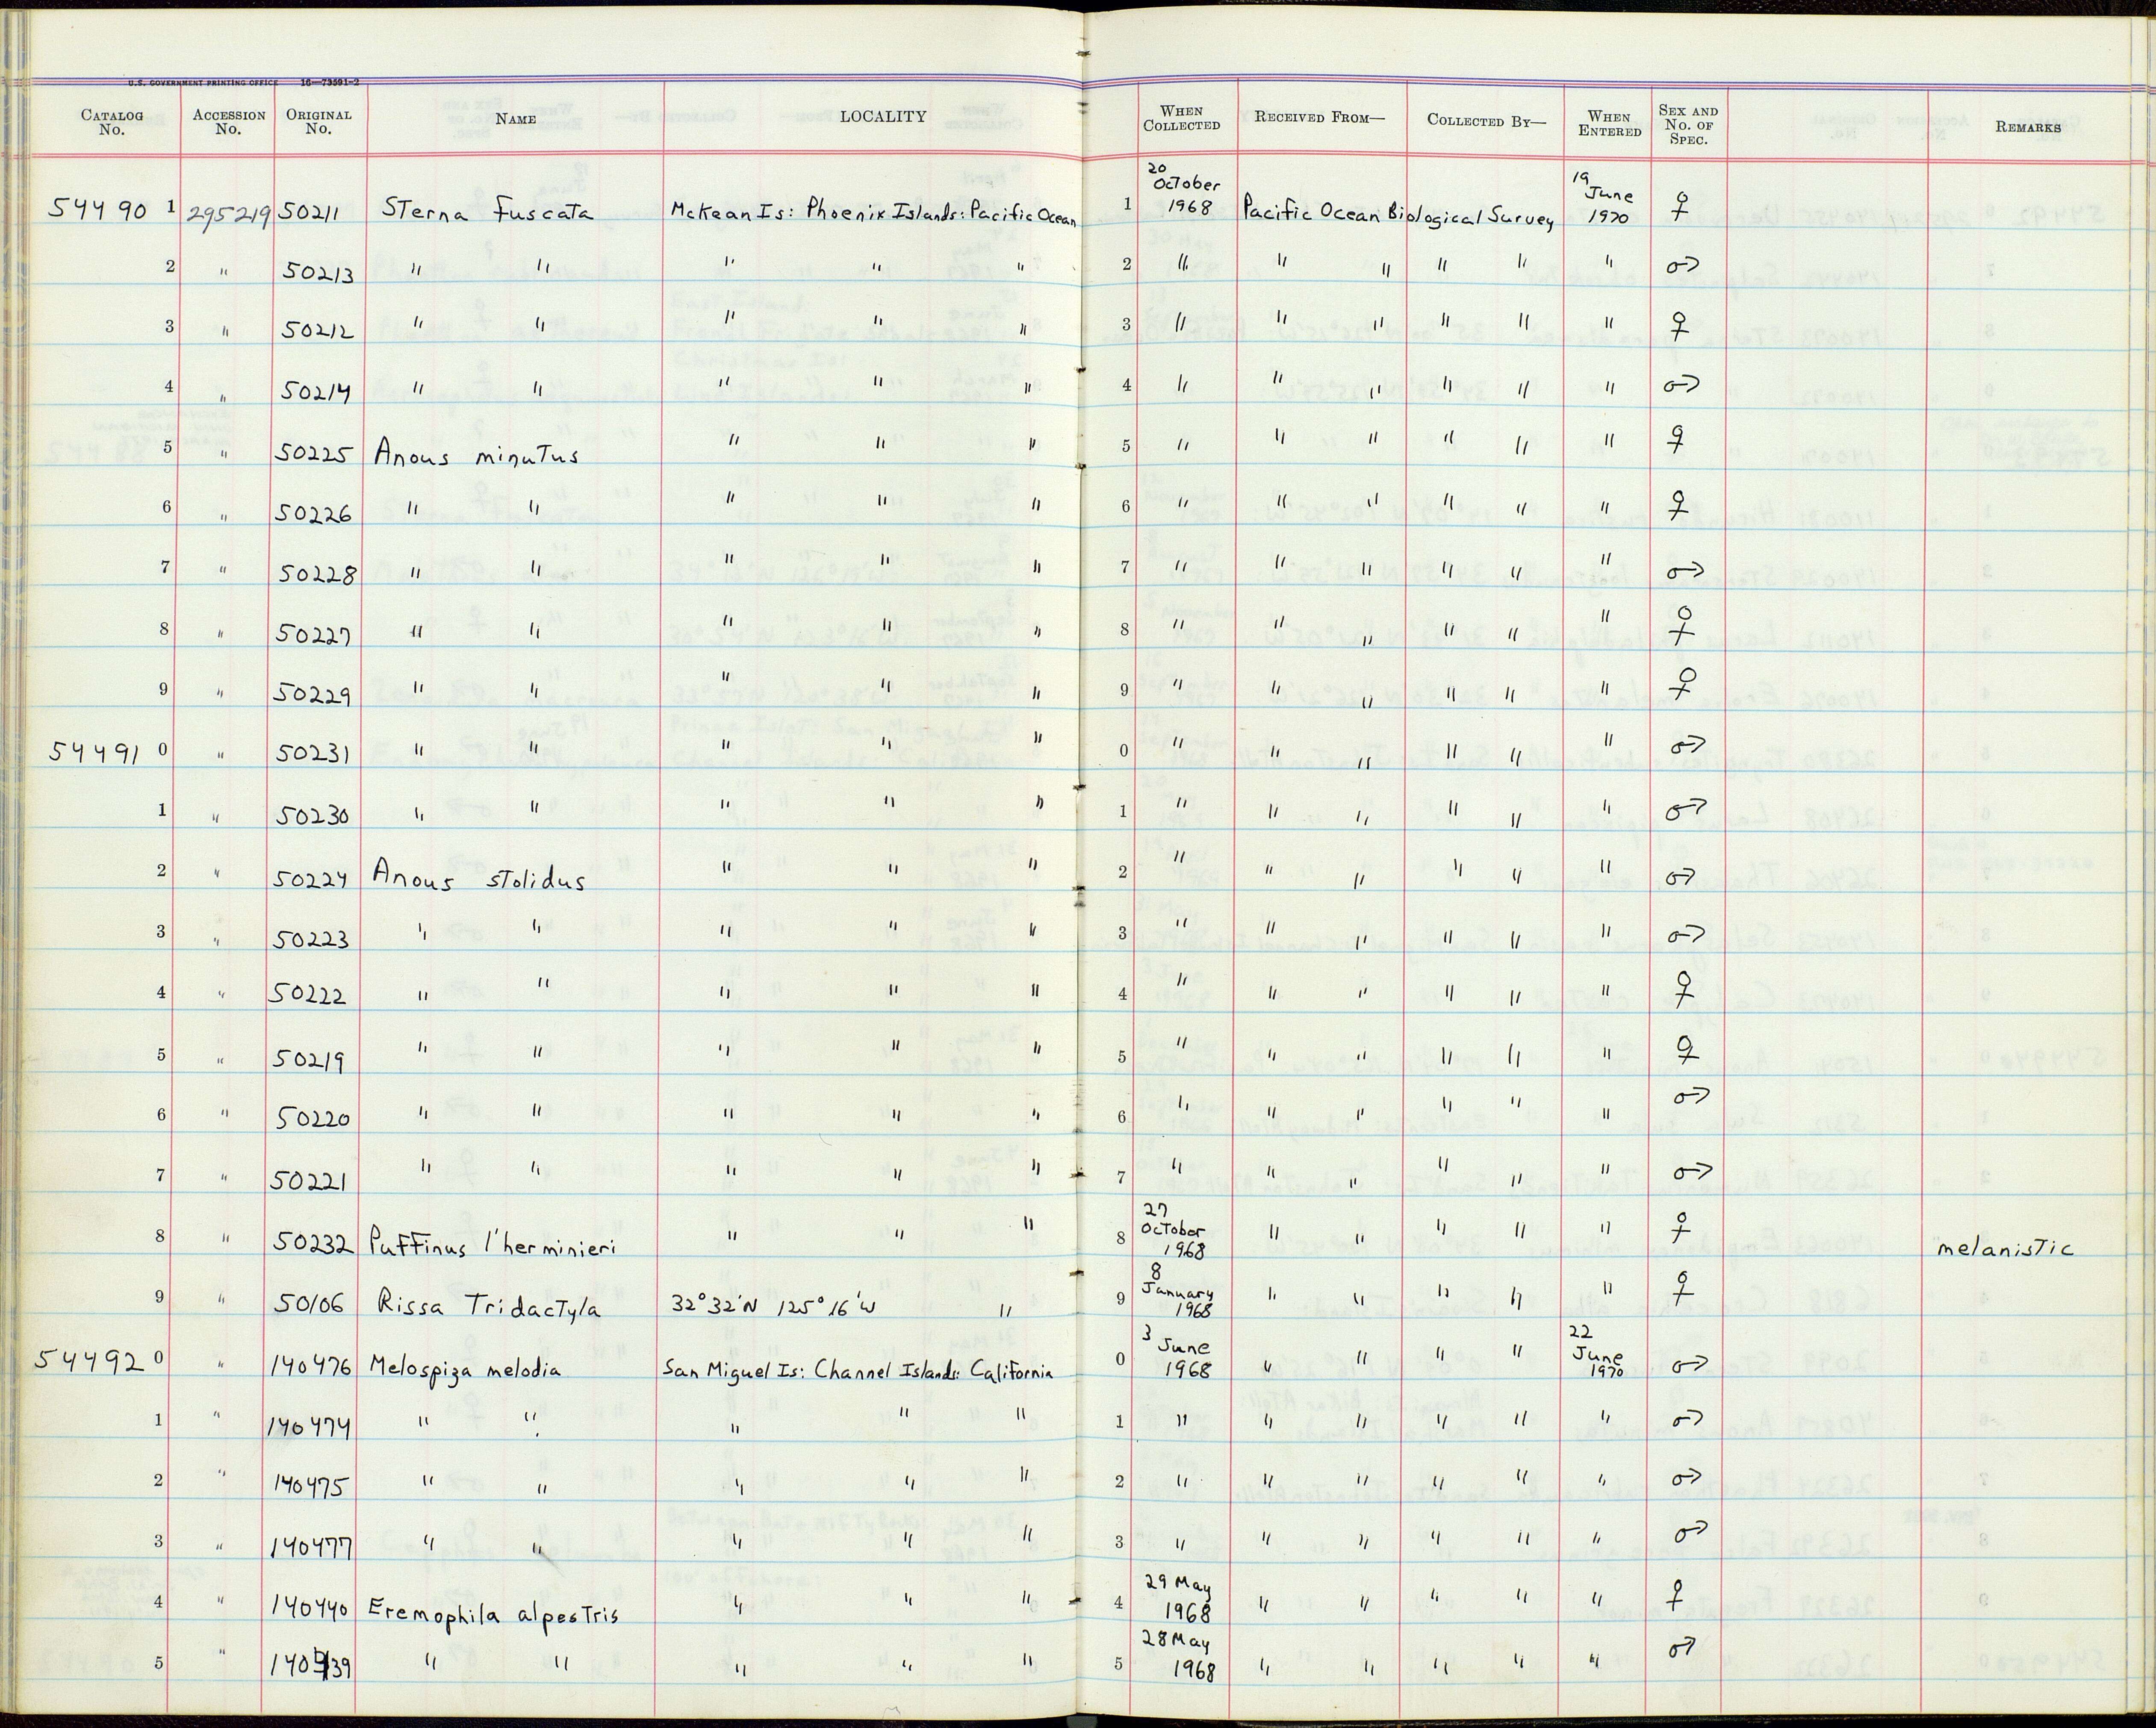 U.S. GOVERNMENT PRINTING OFFICE 16—73591-2
CATALOG No. ACCESSION No. ORIGINAL No. NAME LOCALITY WHEN COLLECTED RECEIVED FROM— COLLECTED BY— WHEN ENTERED SEX AND No. OF SPEC. REMARKS
54490 1 295219 50211 Sterna fuscata McKean Is: Phoenix Islands: Pacific Ocean 1 20 October 1968 Pacific Ocean Biological Survey 19 June 1970 ♀
2 " 50213 " " " " " 2 " " " " " " ♂
3 " 50212 " " " " " 3 " " " " " " ♀
4 " 50214 " " " " " 4 " " " " " " ♂
5 " 50225 Anous minutus " " " 5 " " " " " " ♀
6 " 50226 " " " " " 6 " " " " " " ♀
7 " 50228 " " " " " 7 " " " " " " ♂
8 " 50227 " " " " " 8 " " " " " " ♀
9 " 50229 " " " " " 9 " " " " " " ♀
54491 0 " 50231 " " " " " 0 " " " " " " ♂
1 " 50230 " " " " " 1 " " " " " " ♂
2 " 50224 Anous stolidus " " " 2 " " " " " " ♂
3 " 50223 " " " " " 3 " " " " " " ♂
4 " 50222 " " " " " 4 " " " " " " ♀
5 " 50219 " " " " " 5 " " " " " " ♀
6 " 50220 " " " " " 6 " " " " " " ♂
7 " 50221 " " " " " 7 " " " " " " ♂
8 " 50232 Puffinus l'herminieri " " " 8 27 October 1968 " " " " " ♀ melanistic
9 " 50106 Rissa Tridactyla 32°32'N 125°16'W " 9 8 January 1968 " " " " " ♀
54492 0 " 140476 Melospiza melodia San Miguel Is: Channel Islands: California 0 3 June 1968 " " " " 22 June 1970 ♂
1 " 140474 " " " " " 1 " " " " " " ♂
2 " 140475 " " " " " 2 " " " " " " ♂
3 " 140477 " " " " " 3 " " " " " " ♂
4 " 140440 Eremophila alpestris " " " 4 29 May 1968 " " " " " ♀
5 " 140439 " " " " " 5 28 May 1968 " " " " " ♂